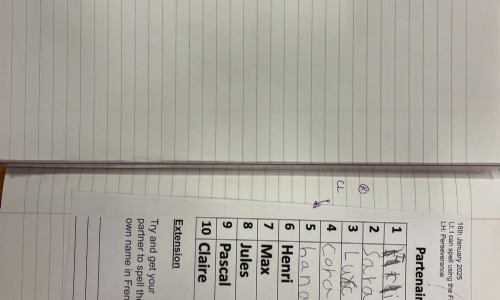 16th January 2025
LI: I can spell using the F
LH: Perseverance
Partenair
1
2 Sara
3
4 Cora
5 hana
6 Henri
7 Max
8 Jules
9 Pascal
10 Claire
Extension
Try and get your
partner to spell the
own name in Fren
CL
R